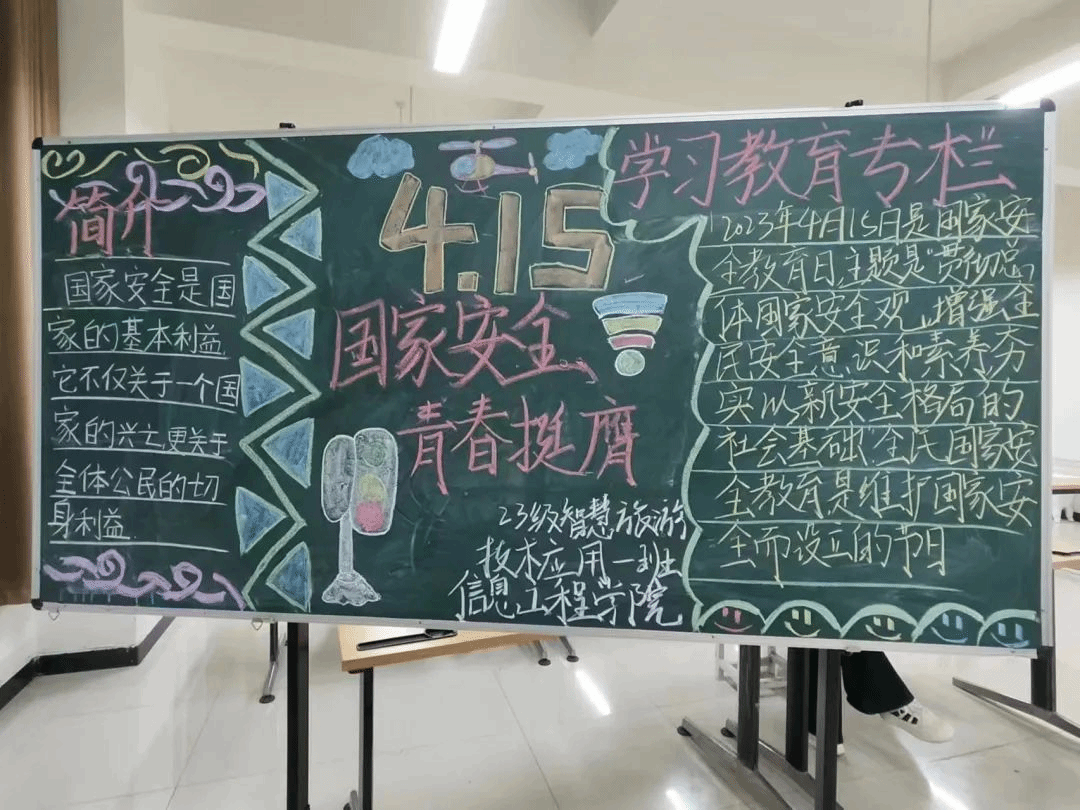 简介
国家安全是国
家的基本利益
它不仅关于一个国
家的兴亡更关于
全体公民的切
身利益
4.15
国家安全、
青春挺膺
23级智慧旅游
技术应用一班
信息工程学院
学习教育专栏
2023年4月15日是国家安
全教育日主题是“贯彻总
体国家安全观，增强全
民安全意识和素养夯
实以新安全格局的
社会基础”全民国家安
全教育是维护国家安
全而设立的节日